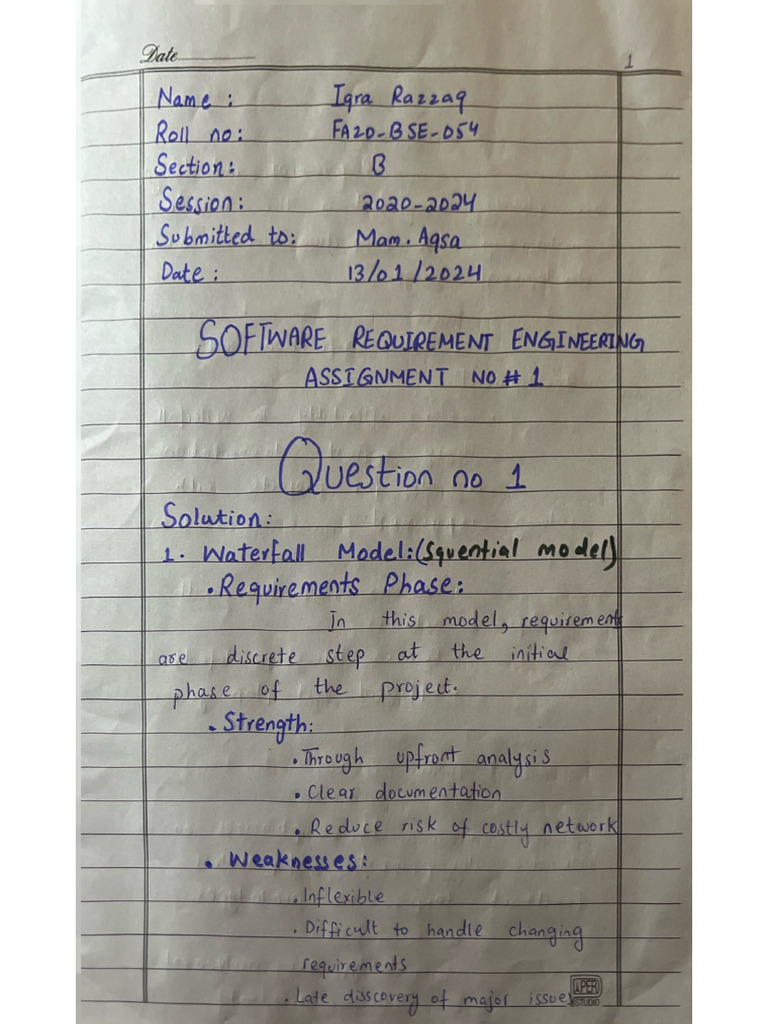 Date
1
Name : Iqra Razzaq
Roll no: FA20-BSE-054
Section: B
Session: 2020-2024
Submitted to: Mam. Aqsa
Date : 13/01/2024
SOFTWARE REQUIREMENT ENGINEERING
ASSIGNMENT NO # 1
Question no 1
Solution:
1. Waterfall Model:(Squential model)
• Requirements Phase:
In this model, requirements
are discrete step at the initial
phase of the project.
• Strength:
• Through upfront analysis
• Clear documentation
• Reduce risk of costly network
• Weaknesses:
• Inflexible
• Difficult to handle changing
requirements
• Late disscovery of major issues
APER
STUDIO